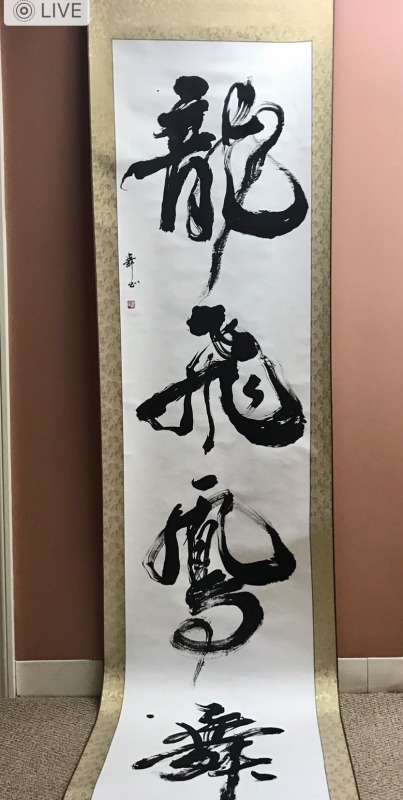 LIVE
龍飛鳳舞